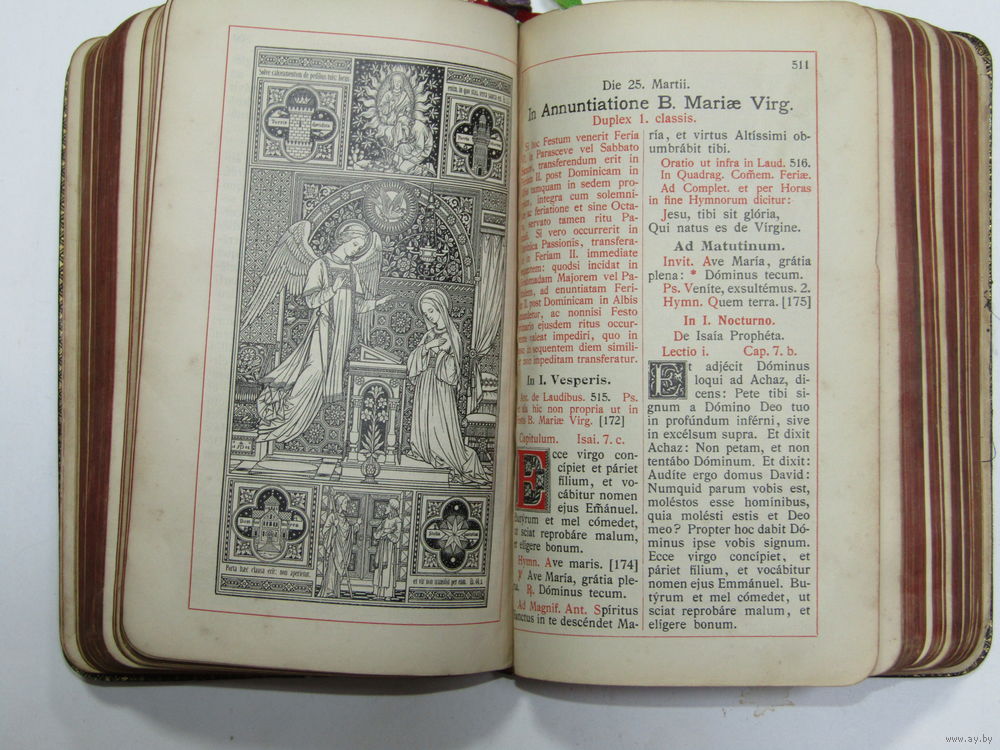 Solve calceamentum de pedibus tuis: locus
enim, in quo stas, terra sancta est.
Turris
Porta haec clausa erit: non aperietur,
et vir non transibit per eam.
511
Die 25. Martii.
In Annuntiatione B. Mariæ Virg.
Duplex 1. classis.
Si hoc Festum venerit Feria
in Parasceve vel Sabbato
transferendum erit in
II. post Dominicam in
tamquam in sedem pro-
integra cum solemni-
feriatione et sine Octa-
servato tamen ritu Pa-
Si vero occurrerit in
Passionis, transfera-
in Feriam II. immediate
quodsi incidat in
Majorem vel Pa-
ad enuntiatam Feri-
II. post Dominicam in Albis
ac nonnisi Festo
ejusdem ritus occur-
valeat impediri, quo in
in sequentem diem simili-
non impeditam transferatur.
In I. Vesperis.
Ant. de Laudibus. 515. Ps.
hic non propria ut in
B. Mariæ Virg. [172]
Capitulum. Isai. 7. c.
Ecce virgo con-
cípiet et páriet
fílium, et vo-
cábitur nomen
ejus Em̃ánuel.
Butýrum et mel cómedet,
ut sciat reprobáre malum,
et elígere bonum.
Hymn. Ave maris. [174]
℣ Ave María, grátia ple-
na. ℟. Dóminus tecum.
Ad Magnif. Ant. Spíritus
Sanctus in te descéndet Ma-
ría, et virtus Altíssimi ob-
umbrábit tibi.
Oratio ut infra in Laud. 516.
In Quadrag. Com̃em. Feriæ.
Ad Complet. et per Horas
in fine Hymnorum dicitur:
Jesu, tibi sit glória,
Qui natus es de Vírgine.
Ad Matutinum.
Invit. Ave María, grátia
plena: * Dóminus tecum.
Ps. Veníte, exsultémus. 2.
Hymn. Quem terra. [175]
In I. Nocturno.
De Isaía Prophéta.
Lectio i. Cap. 7. b.
Et adjécit Dóminus
loqui ad Achaz, di-
cens: Pete tibi si-
gnum a Dómino Deo tuo
in profúndum inférni, sive
in excélsum supra. Et dixit
Achaz: Non petam, et non
tentábo Dóminum. Et dixit:
Audíte ergo domus David:
Numquid parum vobis est,
moléstos esse homínibus,
quia molésti estis et Deo
meo? Propter hoc dabit Dó-
minus ipse vobis signum.
Ecce virgo concípiet, et
páriet fílium, et vocábitur
nomen ejus Emmánuel. Bu-
týrum et mel cómedet, ut
sciat reprobáre malum, et
elígere bonum.
www.ay.by